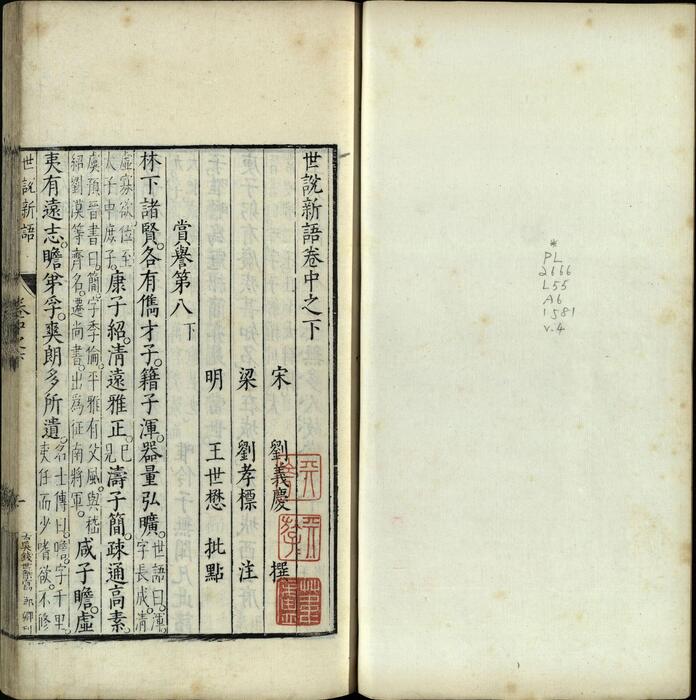 世說新語卷中之下
宋 劉義慶 撰
梁 劉孝標 注
明 王世懋 批點
賞譽第八下
林下諸賢。各有儁才子。籍子渾。器量弘曠。世語曰。渾字長成。清
虛寡欲。位至太子中庶子。康子紹。清遠雅正。已見濤子簡。疎通高素。
虞預晉書曰。簡字季倫。平雅有父風。與嵇紹劉漠等齊名。遷尚書。出為征南將軍。咸子瞻。虛
夷有遠志。瞻弟孚。爽朗多所遺。名士傳曰。瞻字千里。夷任而少嗜欲。不修
世說新語
*
PL
2666
L55
A6
1581
v.4